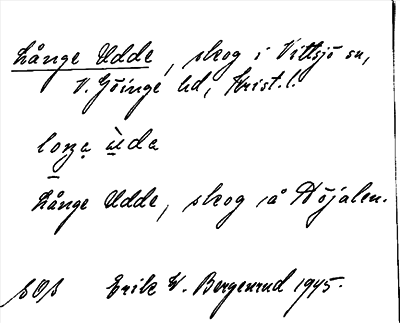 Långe Udde, skog i Vittsjö sn,
V. Göinge hd, Krist. l.
Långe Udde, skog å Höjalen.
Erik W. Bergenrud 1945.